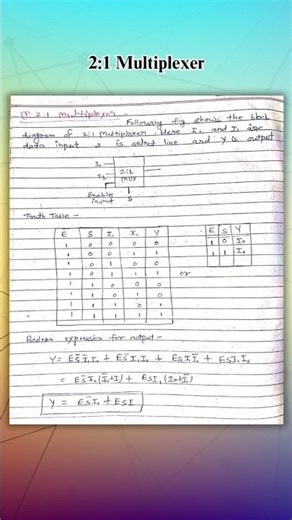 2:1 Multiplexer
① 2:1 Multiplexer
Following fig shows the block
diagram of 2:1 multiplexer. Here I₀ and I₁ are
data input s is select line and Y is output
I₀
I₁
2:1
MUX
Enable
input
S
Truth Table -
E S I₁ I₀ Y
1 0 0 0 0
1 0 0 1 1
1 0 1 0 0
1 0 1 1 1
1 1 0 0 0
1 1 0 1 0
1 1 1 0 1
1 1 1 1 1
or
E S Y
1 0 I₀
1 1 I₁
Boolean expression for output -
Y = ES̄ Ī₁I₀ + ES̄ I₁I₀ + ESI₁Ī₀ + ESI₁I₀
= ES̄ I₀(Ī₁+I₁) + ESI₁(I₀+Ī₀)
Y = ES̄I₀ + ESI₁